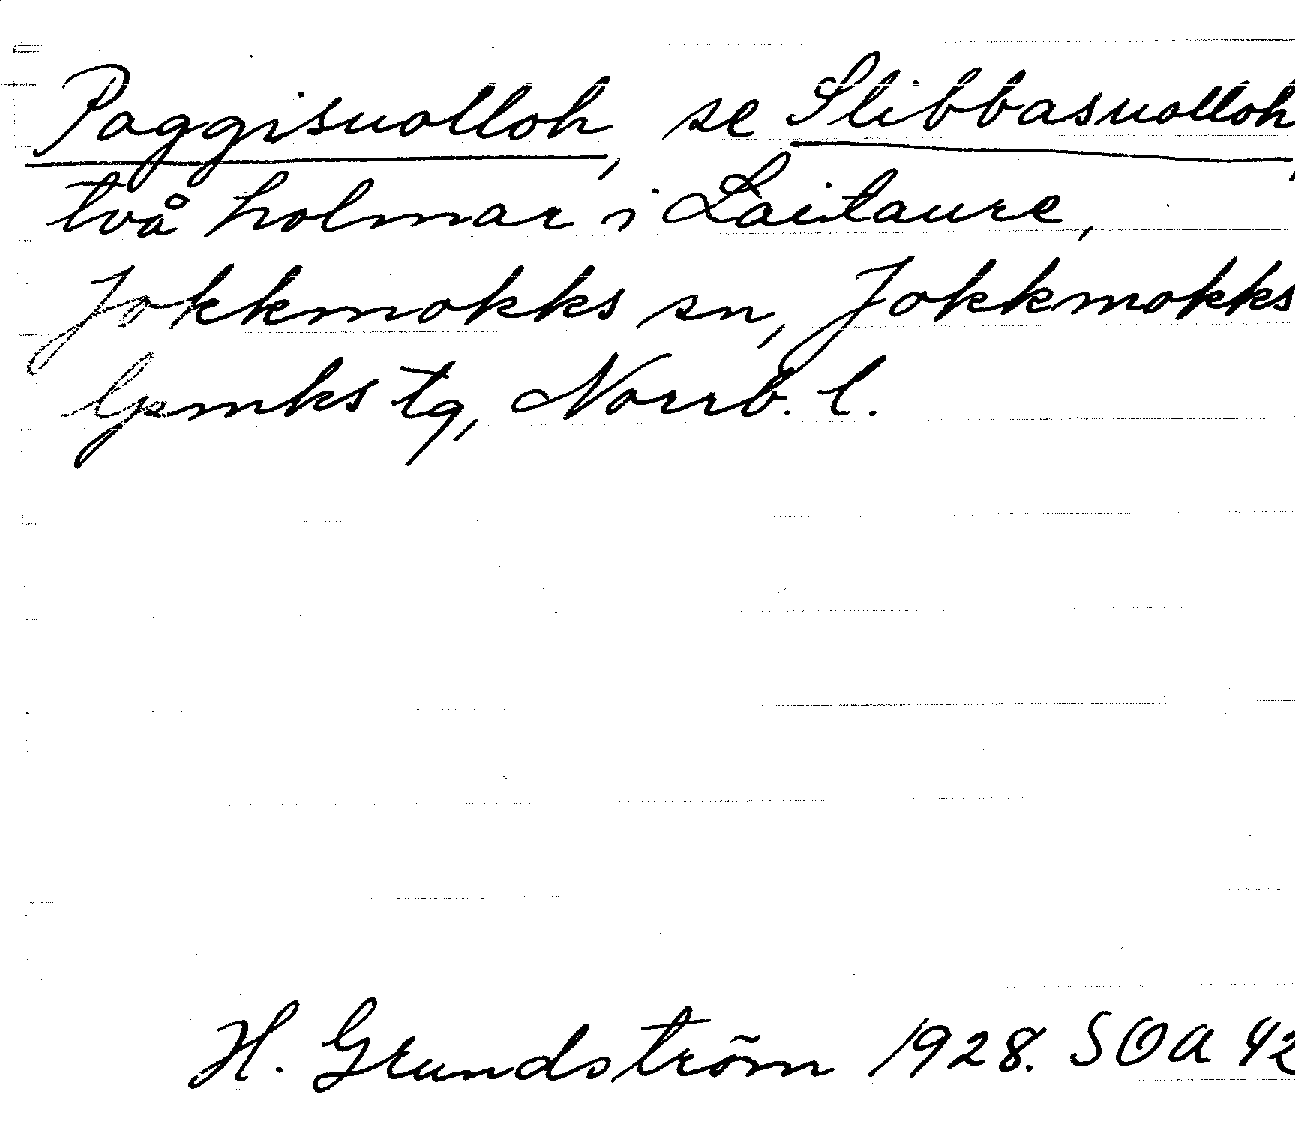 Paggisuolloh, se Slibbasuolloh,
två holmar i Laitaure,
Jokkmokks sn, Jokkmokks
lpmks tg, Norrb. l.
H. Grundström 1928. SOA 42